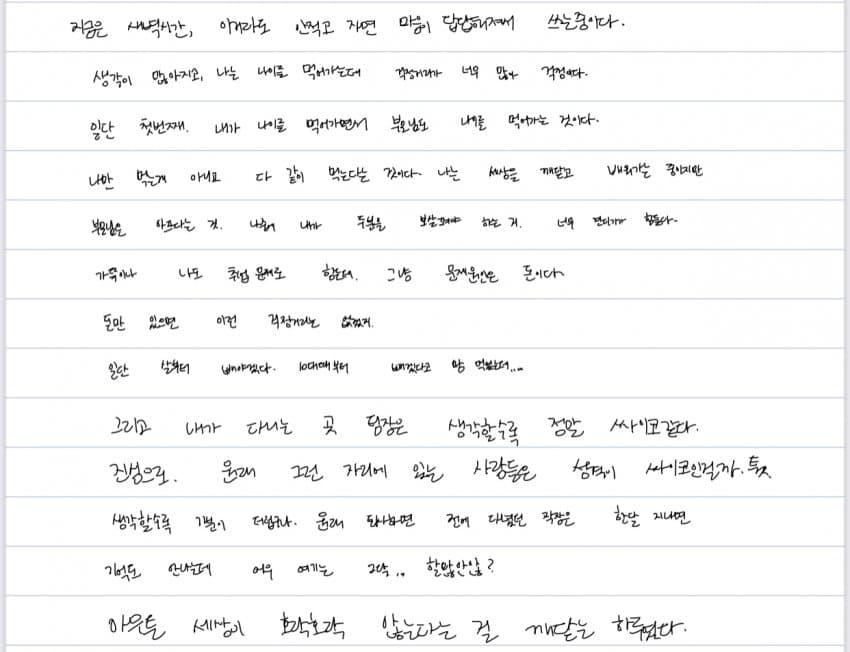 지금은 새벽시간, 이거라도 안적고 자면 마음이 답답해져서 쓰는중이다.
생각이 많아지고, 나는 나이를 먹어가는데 걱정거리가 너무 많아 걱정이다.
일단 첫번째. 내가 나이를 먹어가면서 부모님도 나이를 먹어가는 것이다.
나만 먹는게 아니고 다 같이 먹는다는 것이다. 나는 세상을 깨닫고 배워가는 중이지만
부모님은 아프다는 것. 나중에 내가 두분을 보살펴야 하는 거. 너무 견디기가 힘들다.
가뜩이나 나도 취업 문제로 힘든데. 그냥 문제원인은 돈이다
돈만 있으면 이런 걱정거리는 없겠지.
일단 살부터 빼야겠다. 10대때부터 빼겠다고 맘 먹었는데....
그리고 내가 다니는 곳 팀장은 생각할수록 정말 싸이코같다.
진심으로. 원래 그런 자리에 있는 사람들은 성격이 싸이코인걸까.
생각할수록 기분이 더럽구나. 원래 퇴사하면 전에 다녔던 직장은 한달 지나면
기억도 안나는데 어우 여기는 할많않알?
아무튼 세상이 호락호락 않는다는 걸 깨닫는 하루였다.